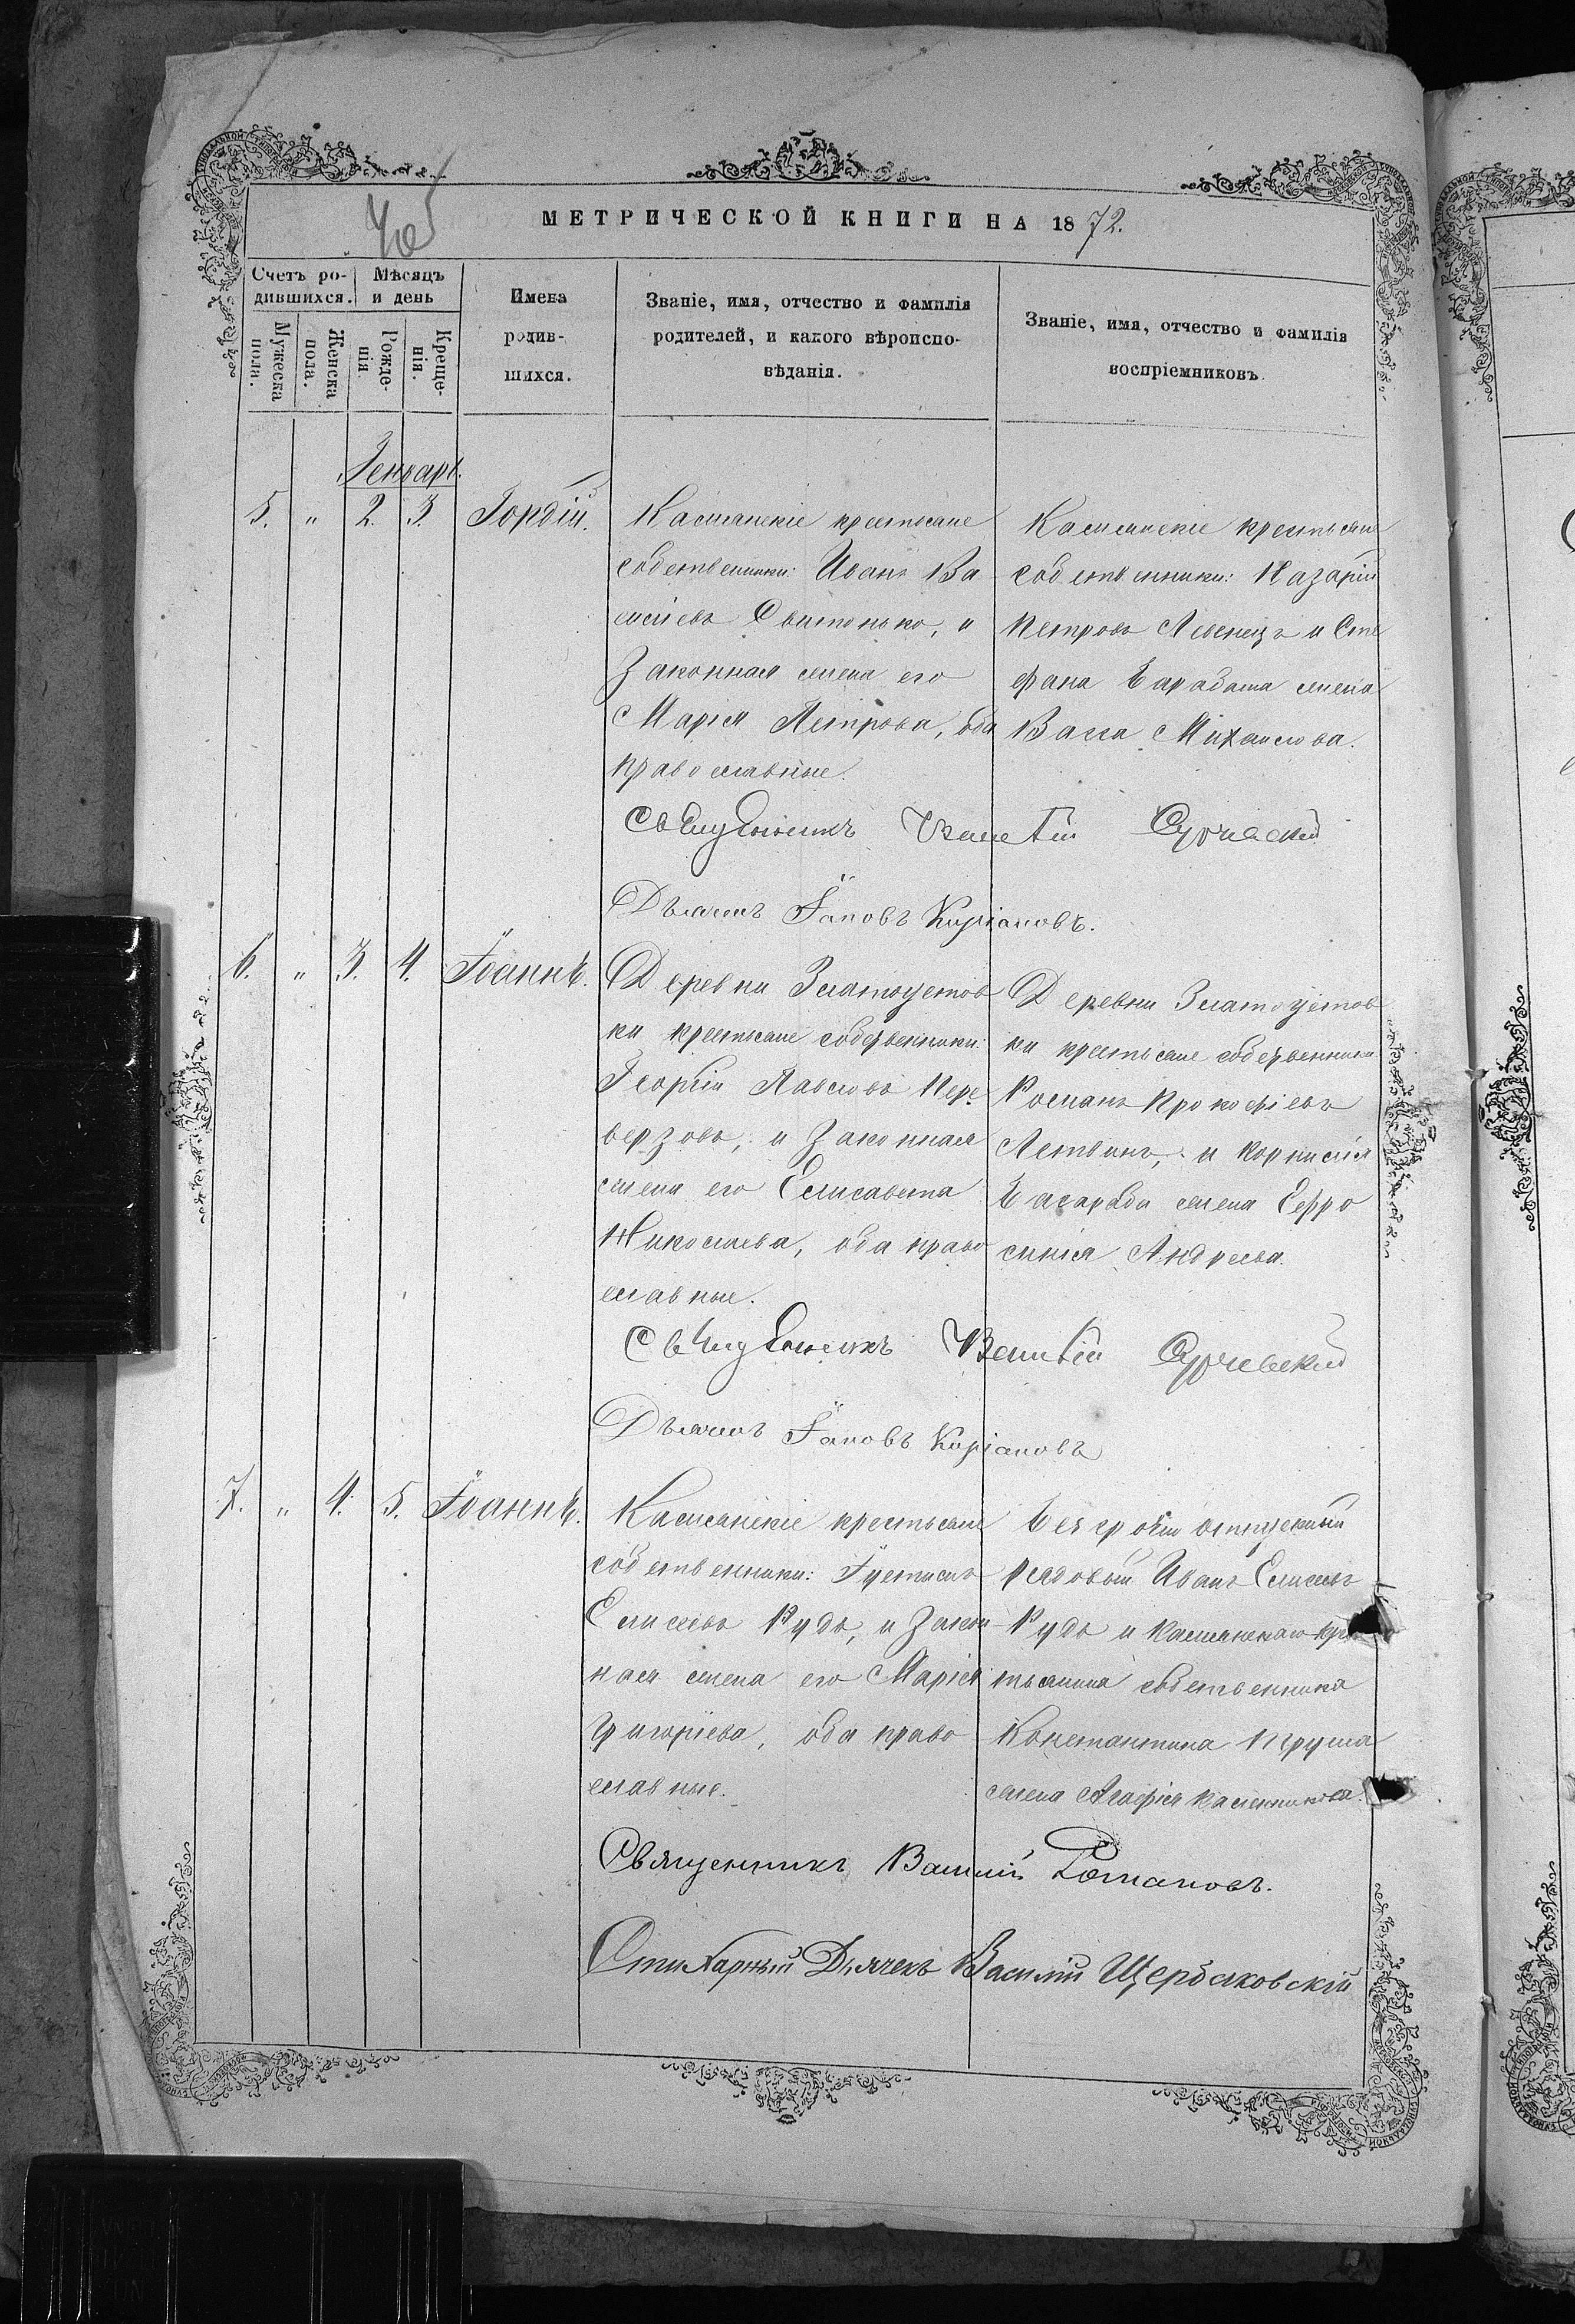 405
МЕТРИЧЕСКОЙ КНИГИ НА 1872.
Счетъ ро-
дившихся.
Мѣсяцъ
и день
Мужеска
пола.
Женска
пола.
Рожде-
нія.
Креще-
нія.
Имена
родив-
шихся.
Званіе, имя, отчество и фамилія
родителей, и какого вѣроиспо-
вѣданія.
Званіе, имя, отчество и фамилія
воспріемниковъ
Генварь.
5. " 2. 3. Гордій.
крестьяне
собственники: Иванъ Ва
силіевъ и
законная жена его
Марія Петрова, оба
православные.
крестьяне
собственники: Назарій
Петровъ и Сте
фана Барабаша жена
Васса Михаилова.
Священникъ
Дьячекъ Іаковъ Киріаковъ.
6. " 3. 4. Іоаннъ.
Деревни Златоустов
ки крестьяне собственники:
Георгій Павловъ Пере
верзовъ, и законная
жена его Елисавета
Николаева, оба право
славные.
Деревни Златоустов
ки крестьяне собственники
Романъ Прокофіевъ
Летвинъ, и Корнилія
Басараба жена Евфро
синія Андреева.
Священникъ
Дьячекъ Іаковъ Киріаковъ
7. " 4. 5. Іоаннъ.
крестьяне
собственники: Іустинъ
Елисеевъ Рудь, и закон
ная жена его Марія
Григоріева, оба право
славные.
Безсрочно отпускный
рядовый Иванъ Елисеевъ
Рудь и
тьянина собственника
Константина
жена Агафія Каленникова.
Священникъ Василій Романовъ.
Стихарный Дьячекъ Василій Щербаковскій